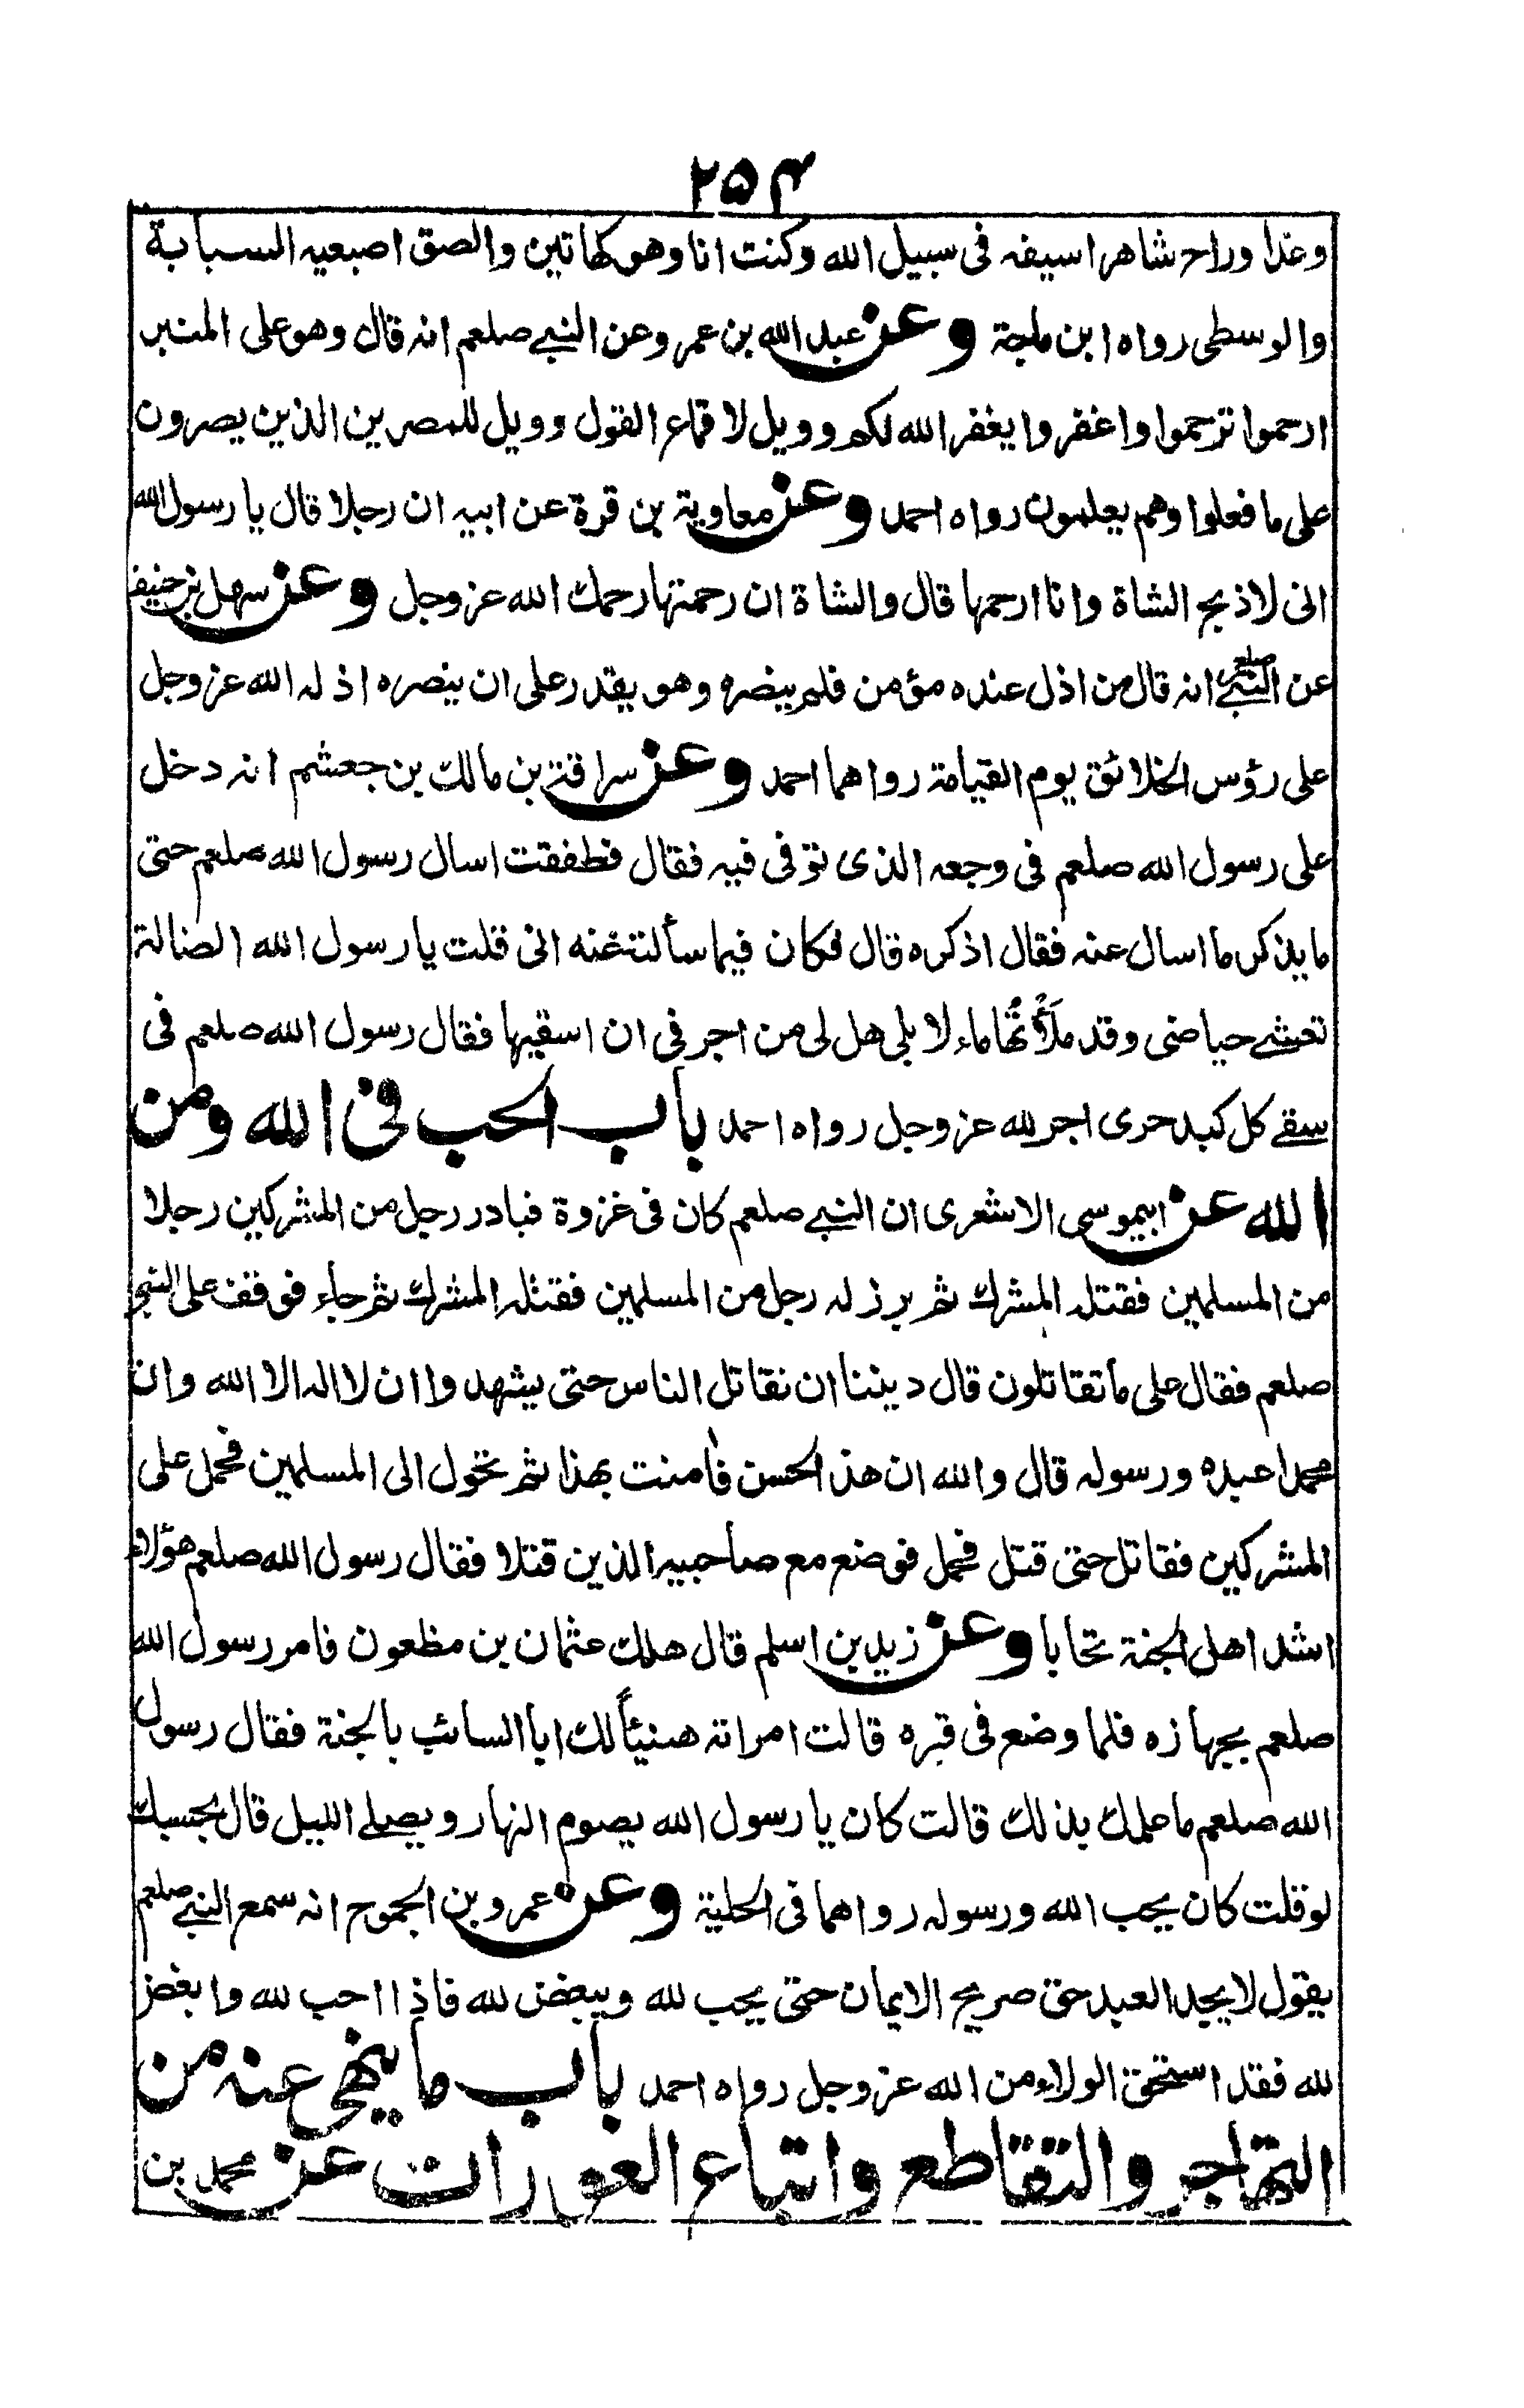 ۲۵۴
وغدا وراح شاهرا سيفه فى سبيل الله وكنت انا وهو كهاتين والصق اصبعيه السبابة
والوسطى رواه ابن ماجة وعن عبد الله بن عمر وعن النبى صلعم انه قال وهو على المنبر
ارحموا ترحموا واغفروا يغفر الله لكم وويل لاقماع القول وويل للمصرين الذين يصرون
على ما فعلوا وهم يعلمون رواه احمد وعن معاوية بن قرة عن ابيه ان رجلا قال يا رسول الله
انى لاذبح الشاة وانا ارحمها قال والشاة ان رحمتها رحمك الله عزوجل وعن سهل بن حنيف
عن النبى صلعم انه قال من اذل عنده مؤمن فلم ينصره وهو يقدر على ان ينصره اذله الله عزوجل
على رؤس الخلائق يوم القيامة رواهما احمد وعن سراقة بن مالك بن جعشم انه دخل
على رسول الله صلعم فى وجعه الذى توفى فيه فقال فطفقت اسال رسول الله صلعم حتى
ما يذكر ما اسال عنه فقال اذكره قال فكان فيما سألته عنه انى قلت يا رسول الله الضالة
تغشى حياضى وقد ملَأْتُها ماء لابلى هل لى من اجر فى ان اسقيها فقال رسول الله صلعم فى
سقى كل كبد حرى اجر لله عزوجل رواه احمد باب الحب فى الله ومن
الله عن ابيموسى الاشعرى ان النبى صلعم كان فى غزوة فبادر رجل من المشركين رجلا
من المسلمين فقتله المشرك ثم برز له رجل من المسلمين فقتله المشرك ثم جاء فوقف على النبى
صلعم فقال على ما تقاتلون قال ديننا ان نقاتل الناس حتى يشهدوا ان لا اله الا الله وان
محمدا عبده ورسوله قال والله ان هذا الحسن فامنت بهذا ثم تحول الى المسلمين فحمل على
المشركين فقاتل حتى قتل فحمل فوضع مع صاحبيه الذين قتلا فقال رسول الله صلعم هؤلاء
اشد اهل الجنة تحابا وعن زيد بن اسلم قال هلك عثمان بن مظعون فامر رسول الله
صلعم بجهازه فلما وضع فى قبره قالت امراته هنيئاً لك ابا السائب بالجنة فقال رسول
الله صلعم ما علمك بذلك قالت كان يا رسول الله يصوم النهار ويصلى الليل قال بحسبك
لو قلت كان يحب الله ورسوله رواهما فى الحلية وعن عمرو بن الجموح انه سمع النبى صلعم
يقول لا يجد العبد حق صريح الايمان حتى يحب لله ويبغض لله فاذا احب لله وابغض
لله فقد استحق الولاء من الله عزوجل رواه احمد باب ما ينهى عنه من
التهاجر والتقاطع واتباع العورات عن محمد بن